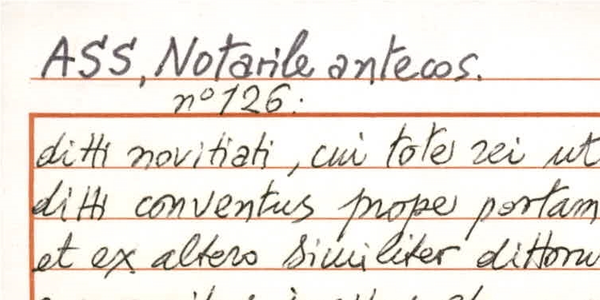 ASS, Notarile antecos.
n° 126:
ditti novitiati, cui tote rei ut
ditti conventus prope portam
et ex altero similiter dittoru